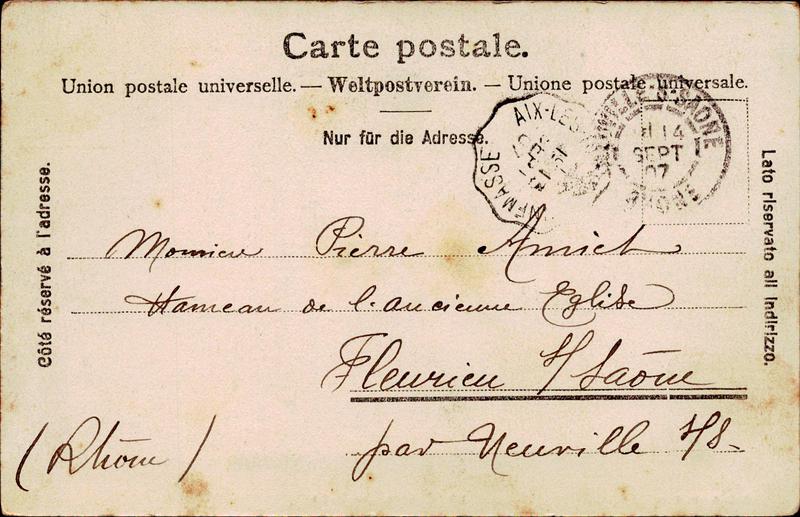 Carte postale.
Union postale universelle. — Weltpostverein. — Unione postale universale.
Nur für die Adresse.
Côté réservé à l'adresse.
Lato riservato all indirizzo.
AIX-LES
MASSE
LLE-S-SAONE
14
SEPT
07
RHONE
Monsieur Pierre Amiet
Hameau de l'ancienne Eglise
Fleurieu S/Saône
par Neuville S/S-
(Rhône)